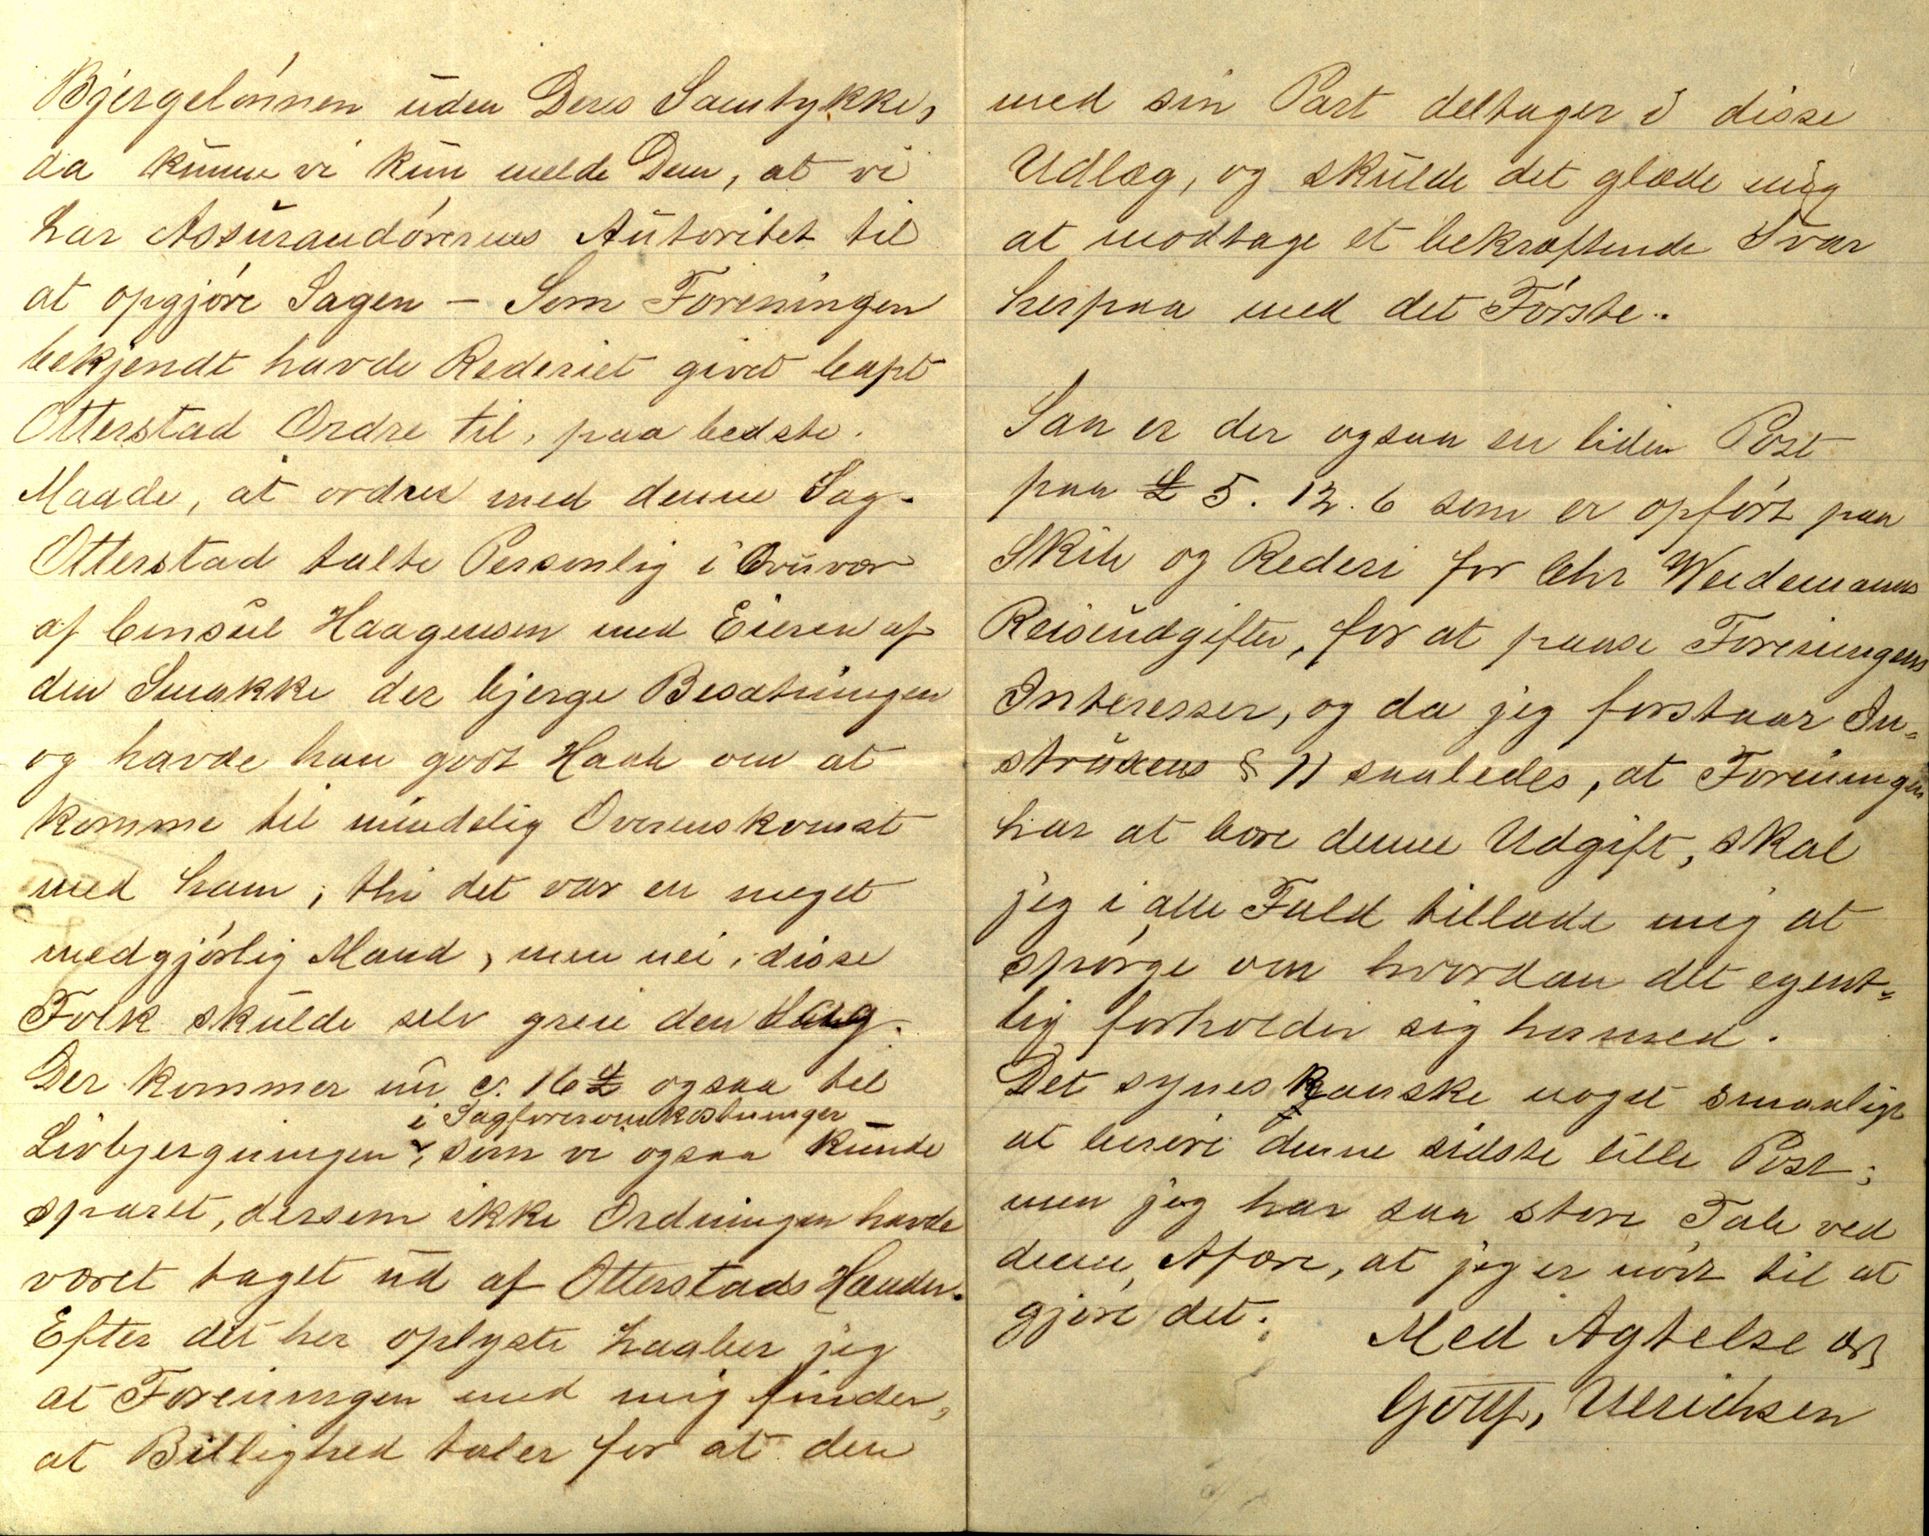 Bjergelønnen uden Deres Samtykke,
da kunne vi kun melde Dem, at vi
har Assurandørernes Autoritet til
at opgjøre Sagen – Som Foreningen
bekjendt havde Rederiet givet Capt
Otterstad Ordre til, paa bedste
Maade, at ordne med denne Sag.
Otterstad talte Personlig i
af Consul Haagensen med Eieren af
den Smakke der bjerge Besætningen
og havde han godt Haab om at
komme til mindelig Overenskomst
med ham, thi det var en meget
medgjørlig Mand, men nei, disse
Folk skulde selv greie den Sag.
Der kommer nu c. 16 £ ogsaa til
i Sagføreromkostninger
Livbjergningen, som vi ogsaa kunde
sparet, dersom ikke Ordningen havde
været taget ud af Otterstads Hænder.
Efter det her oplyste haaber jeg
at Foreningen med mig finder,
at Billighed taler for at den
med sin Part deltager i disse
Udlæg, og skulde det glæde mig
at modtage et bekræftende Svar
herpaa med det Første.
Saa er der ogsaa en liden Post
paa £ 5. 12. 6 som er opført paa
Skib og Rederi for Chr Weidemanns
Reiseudgifter, for at paase Foreningens
Interesser, og da jeg forstaar In-
struxens § 11 saaledes, at Foreningen
har at bære denne Udgift, skal
jeg i alle Fald tillade mig at
spørge om hvordan det egent-
lig forholder sig hermed.
Det synes kanske noget smaaligt
at berøre denne sidste lille Post;
men jeg har saa store Tab ved
denne Affære, at jeg er nødt til at
gjøre det.
Med Agtelse
Gottf, Ulrichsen